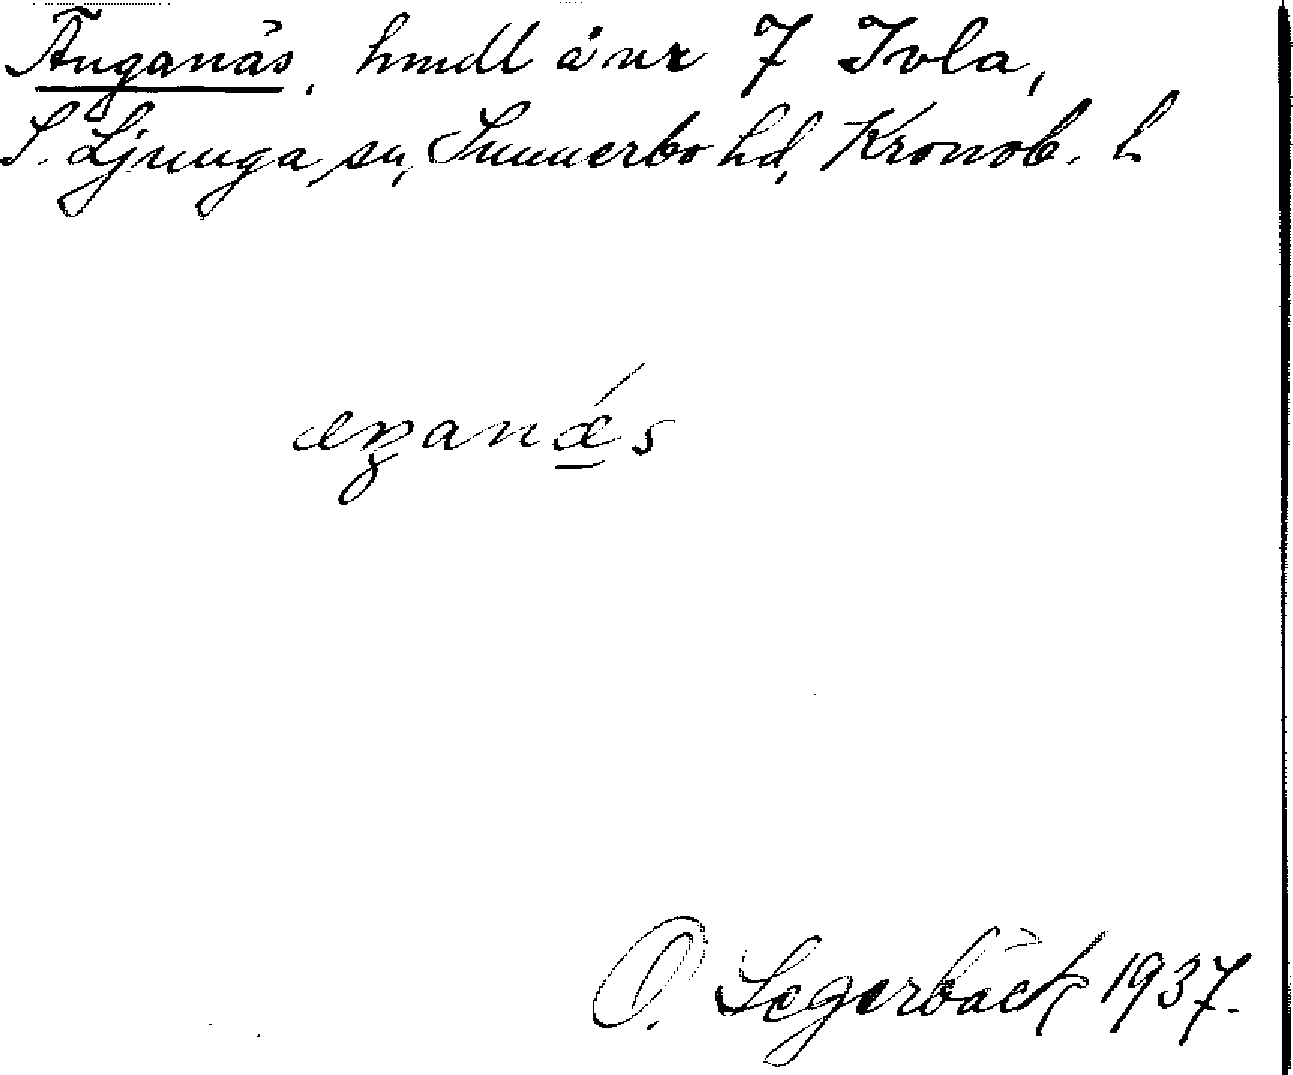 Änganäs, hmdl å nr 7 Ivla,
S. Ljunga sn, Sunnerbo hd, Kronob. l
æŋanǽs
O. Segerbäck 1937.